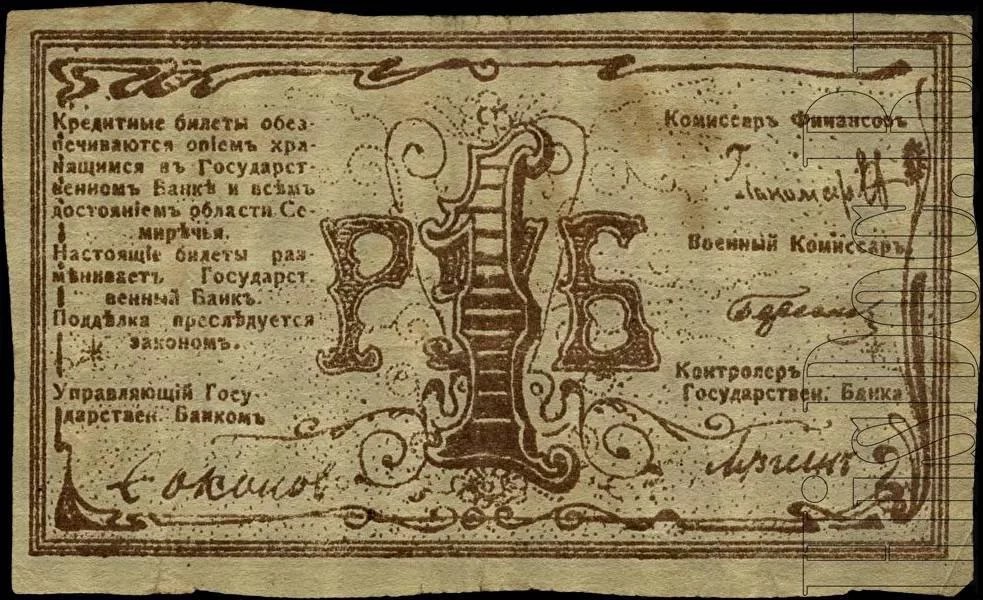 Кредитные билеты обез-
печиваются опіемъ хра-
нящимся въ Государст-
венномъ Банкѣ и всѣмъ
достояніемъ области Се-
мирѣчья.
Настоящіе билеты раз-
мѣниваетъ Государст
венный Банкъ.
Поддѣлка преслѣдуется
закономъ.
Управляющій Госу-
дарствен. Банкомъ
Соколов
1
РУБ
Комиссаръ Финансовъ
Военный Комиссаръ.
Контролеръ
Государствен. Банка